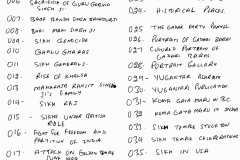 006 SACRIFICE OF GURU GOBIND SINGH JI
007. BABA BANDA SINGH BAHADUR
008. BHAI MANI SINGH JI
009. SIKH GENOCIDE
010. CHALLI GHARAS
011. SIKH GENERALS
012. RISE OF KHALSA
013 MAHARAJA RANJIT SINGH JI'S FAMILY
014. SIKH RAJ
015. - SIKH UNDER BRITISH RULE
016 - FIGHT FOR FREEDOM AND PARTITION OF INDIA
017. ATTACK ON GOLDEN TEMPLE JUNE
024 - HISTORICAL PLACES.
025. THE GADAR PARTY PANELS
026 - PORTRAIT OF GADARI BABAS
027 - COLOURED PORTRAIT OF GADARI BABAS
028. PORTRAIT GALLERY
029 - YUGANTAR ASHRAM
030 - YUGANTAR PUBLICATIONS.
031 - KOMA GATA MARU IN BC.
032 KOMA GATA MARU IN
033 - SIKH TEMPLE STOCKTON
034 - SIKH TEMPLE CELEBRATIONS
035. - SIKH IN USA